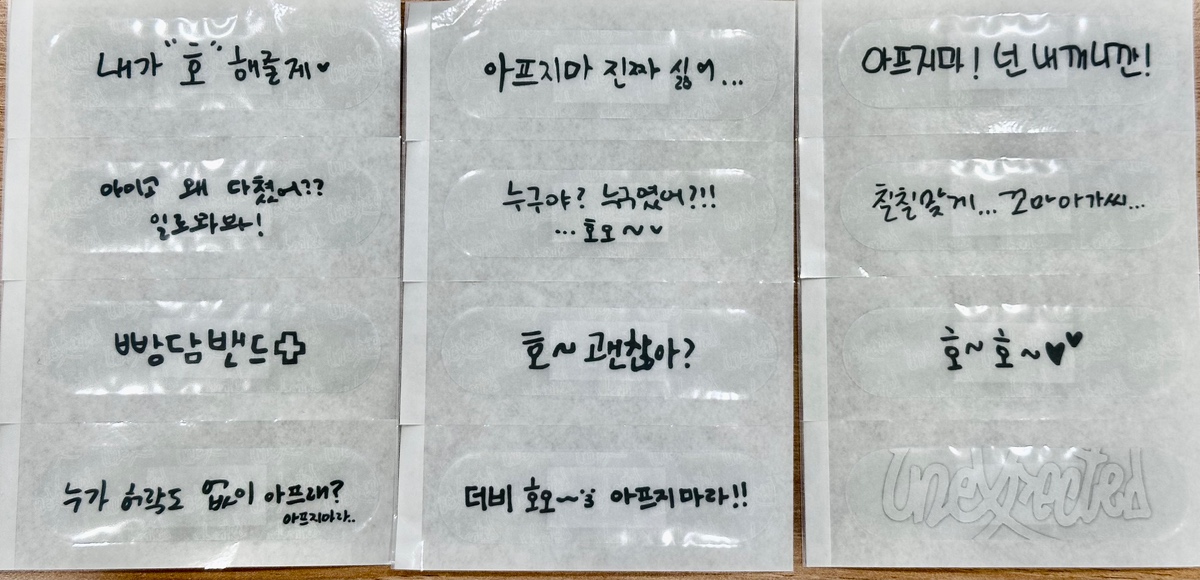 내가 "호" 해줄게♥
아이고 왜 다쳤어??
일로와봐!
빵담밴드
누가 허락도 없이 아프래?
아프지마라..
아프지마 진짜 싫어...
누구야? 누구였어?!!
...호오~♥
호~괜찮아?
더비 호오~ 아프지마라!!
아프지마! 넌 내꺼니깐!
칠칠맞게... 꼬마아가씨...
호~호~♥♥
UNEXPECTED